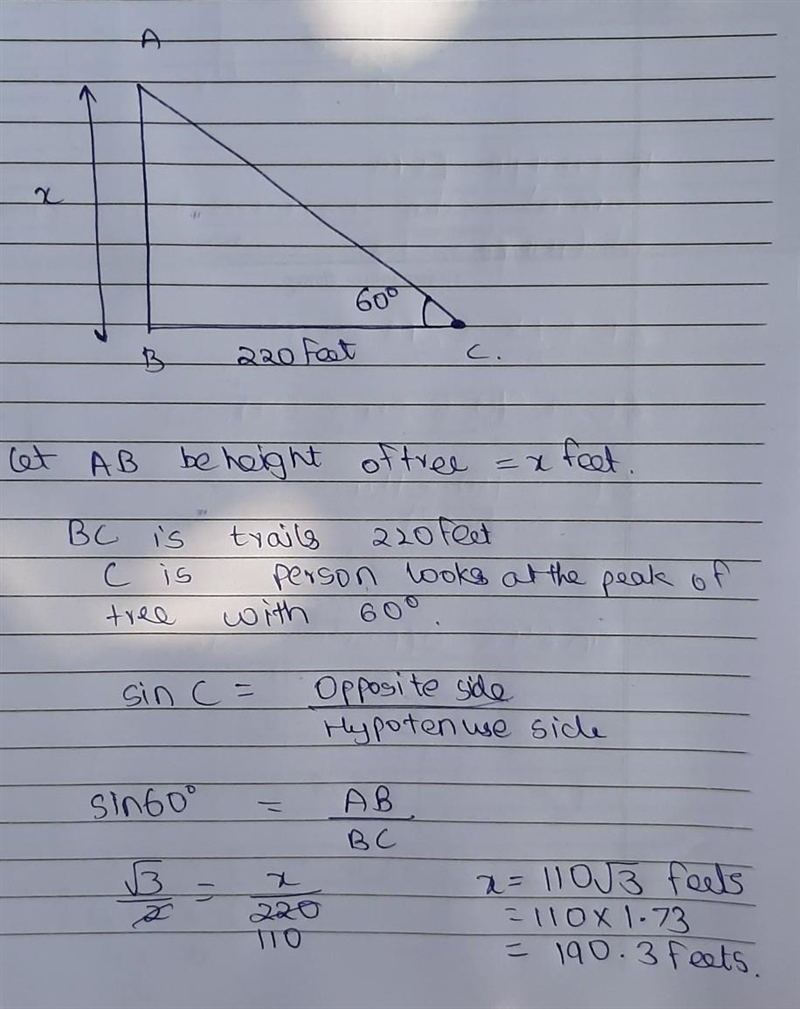 A
x
60°
B 220 Feet C.
Let AB be height of tree = x feet.
BC is trails 220 feet
C is person looks at the peak of
tree with 60°.
sin C = Opposite side
Hypotenuse side
sin60° = AB
BC
√3 = x x = 110√3 feets
2 220 = 110 x 1.73
110 = 190.3 feets.